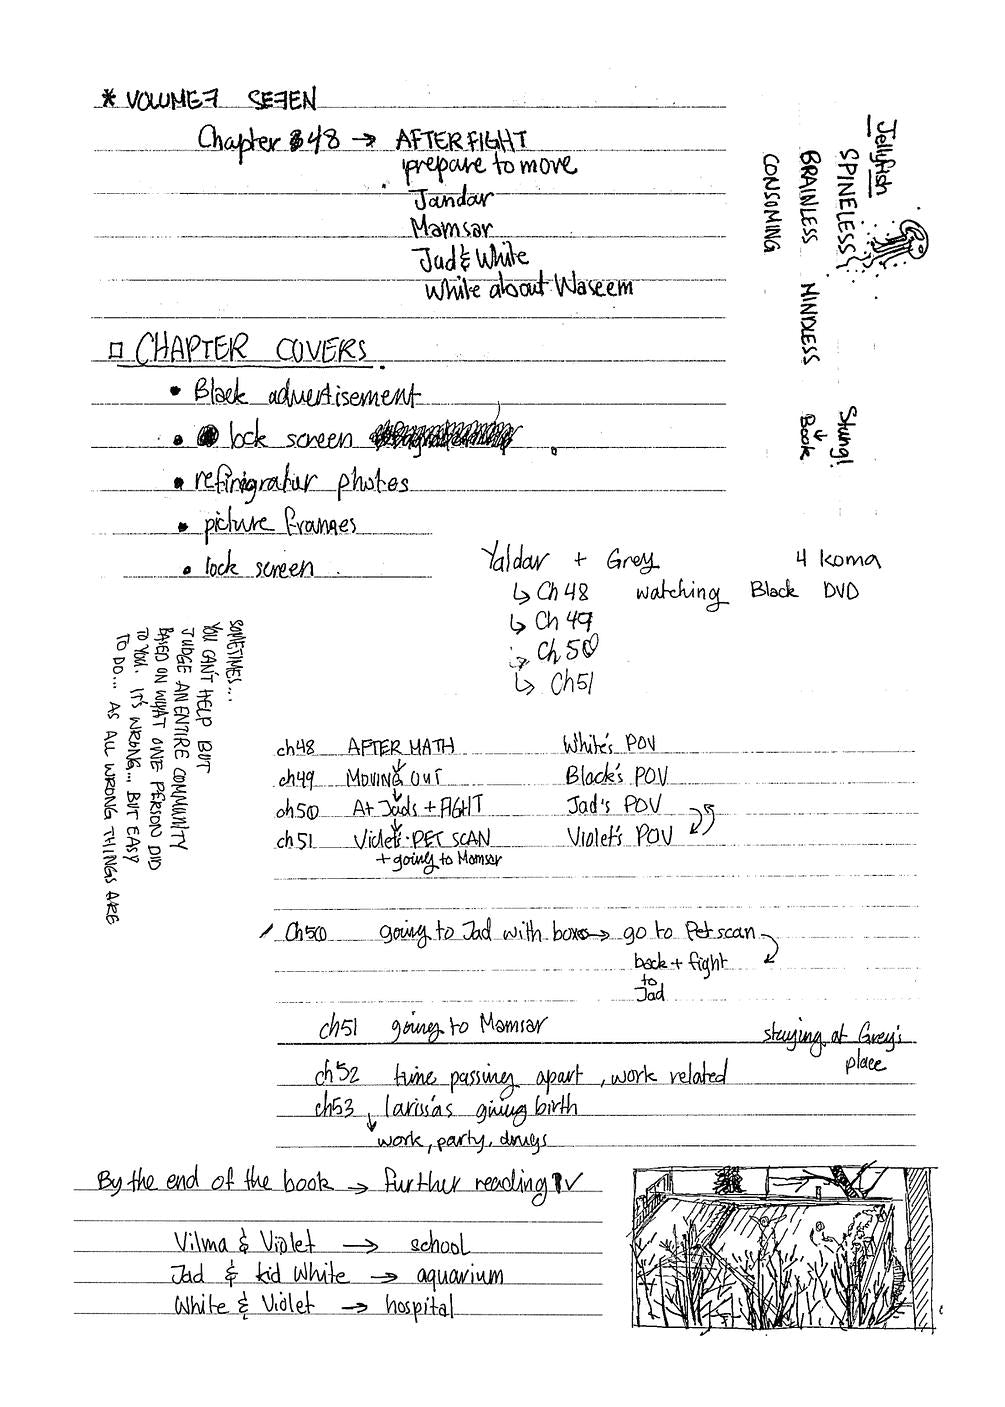 * VOLUME 7 SE7EN
Chapter 48 → AFTER FIGHT
prepare to move
Jandar
Mamsar
Jad & White
White about Waseem
□ CHAPTER COVERS
• Black advertisement
• lock screen
• refinigratur photos
• picture frames
• lock screen
Jellyfish
SPINELESS
BRAINLESS MINDLESS
CONSOMING
Stung!
↓
Book
Yaldar + Grey 4 koma
↳ Ch 48 watching Black DVD
↳ Ch 49
↳ Ch 50
↳ Ch51
SOMETIMES...
YOU CAN'T HELP BUT
JUDGE AN ENTIRE COMMUNITY
BASED ON WHAT ONE PERSON DID
TO YOU. IT'S WRONG... BUT EASY
TO DO... AS ALL WRONG THINGS ARE
ch48 AFTERMATH White's POV
ch49 MOVING OUT Black's POV
ch50 At Jad's + FIGHT Jad's POV
ch51 Violet's PET SCAN Violet's POV
+ going to Mamsar
Ch50 going to Jad with boxes → go to Pet scan
back + fight
to
Jad
ch51 going to Mamsar
staying at Grey's
place
ch52 time passing apart, work related
ch53 larissa's giving birth
work, party, drugs
By the end of the book → further reading
Vilma & Violet → school
Jad & kid White → aquarium
White & Violet → hospital